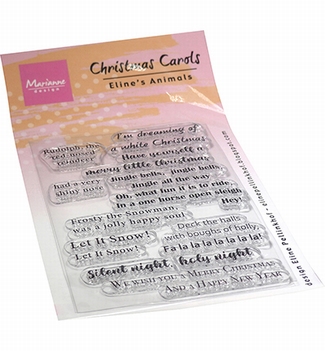 Marianne
Design
Christmas Carols
Eline's Animals
Rudolph, the
red-nosed
reindeer
had a very
shiny nose
I'm dreaming of
a white Christmas
Have yourself a
merry little Christmas
Jingle bells, Jingle bells,
Jingle all the way
Oh, what fun it is to ride
In a one horse open sleigh
Hey!
Frosty the Snowman,
was a jolly happy soul
Let It Snow!
Let It Snow!
Deck the halls
with boughs of holly
Fa la la la la la la!
Silent night, holy night
We wish you a Merry Christmas
And a Happy New Year
design Eline Pellinkhof - elinepellinkhof.blogspot.com